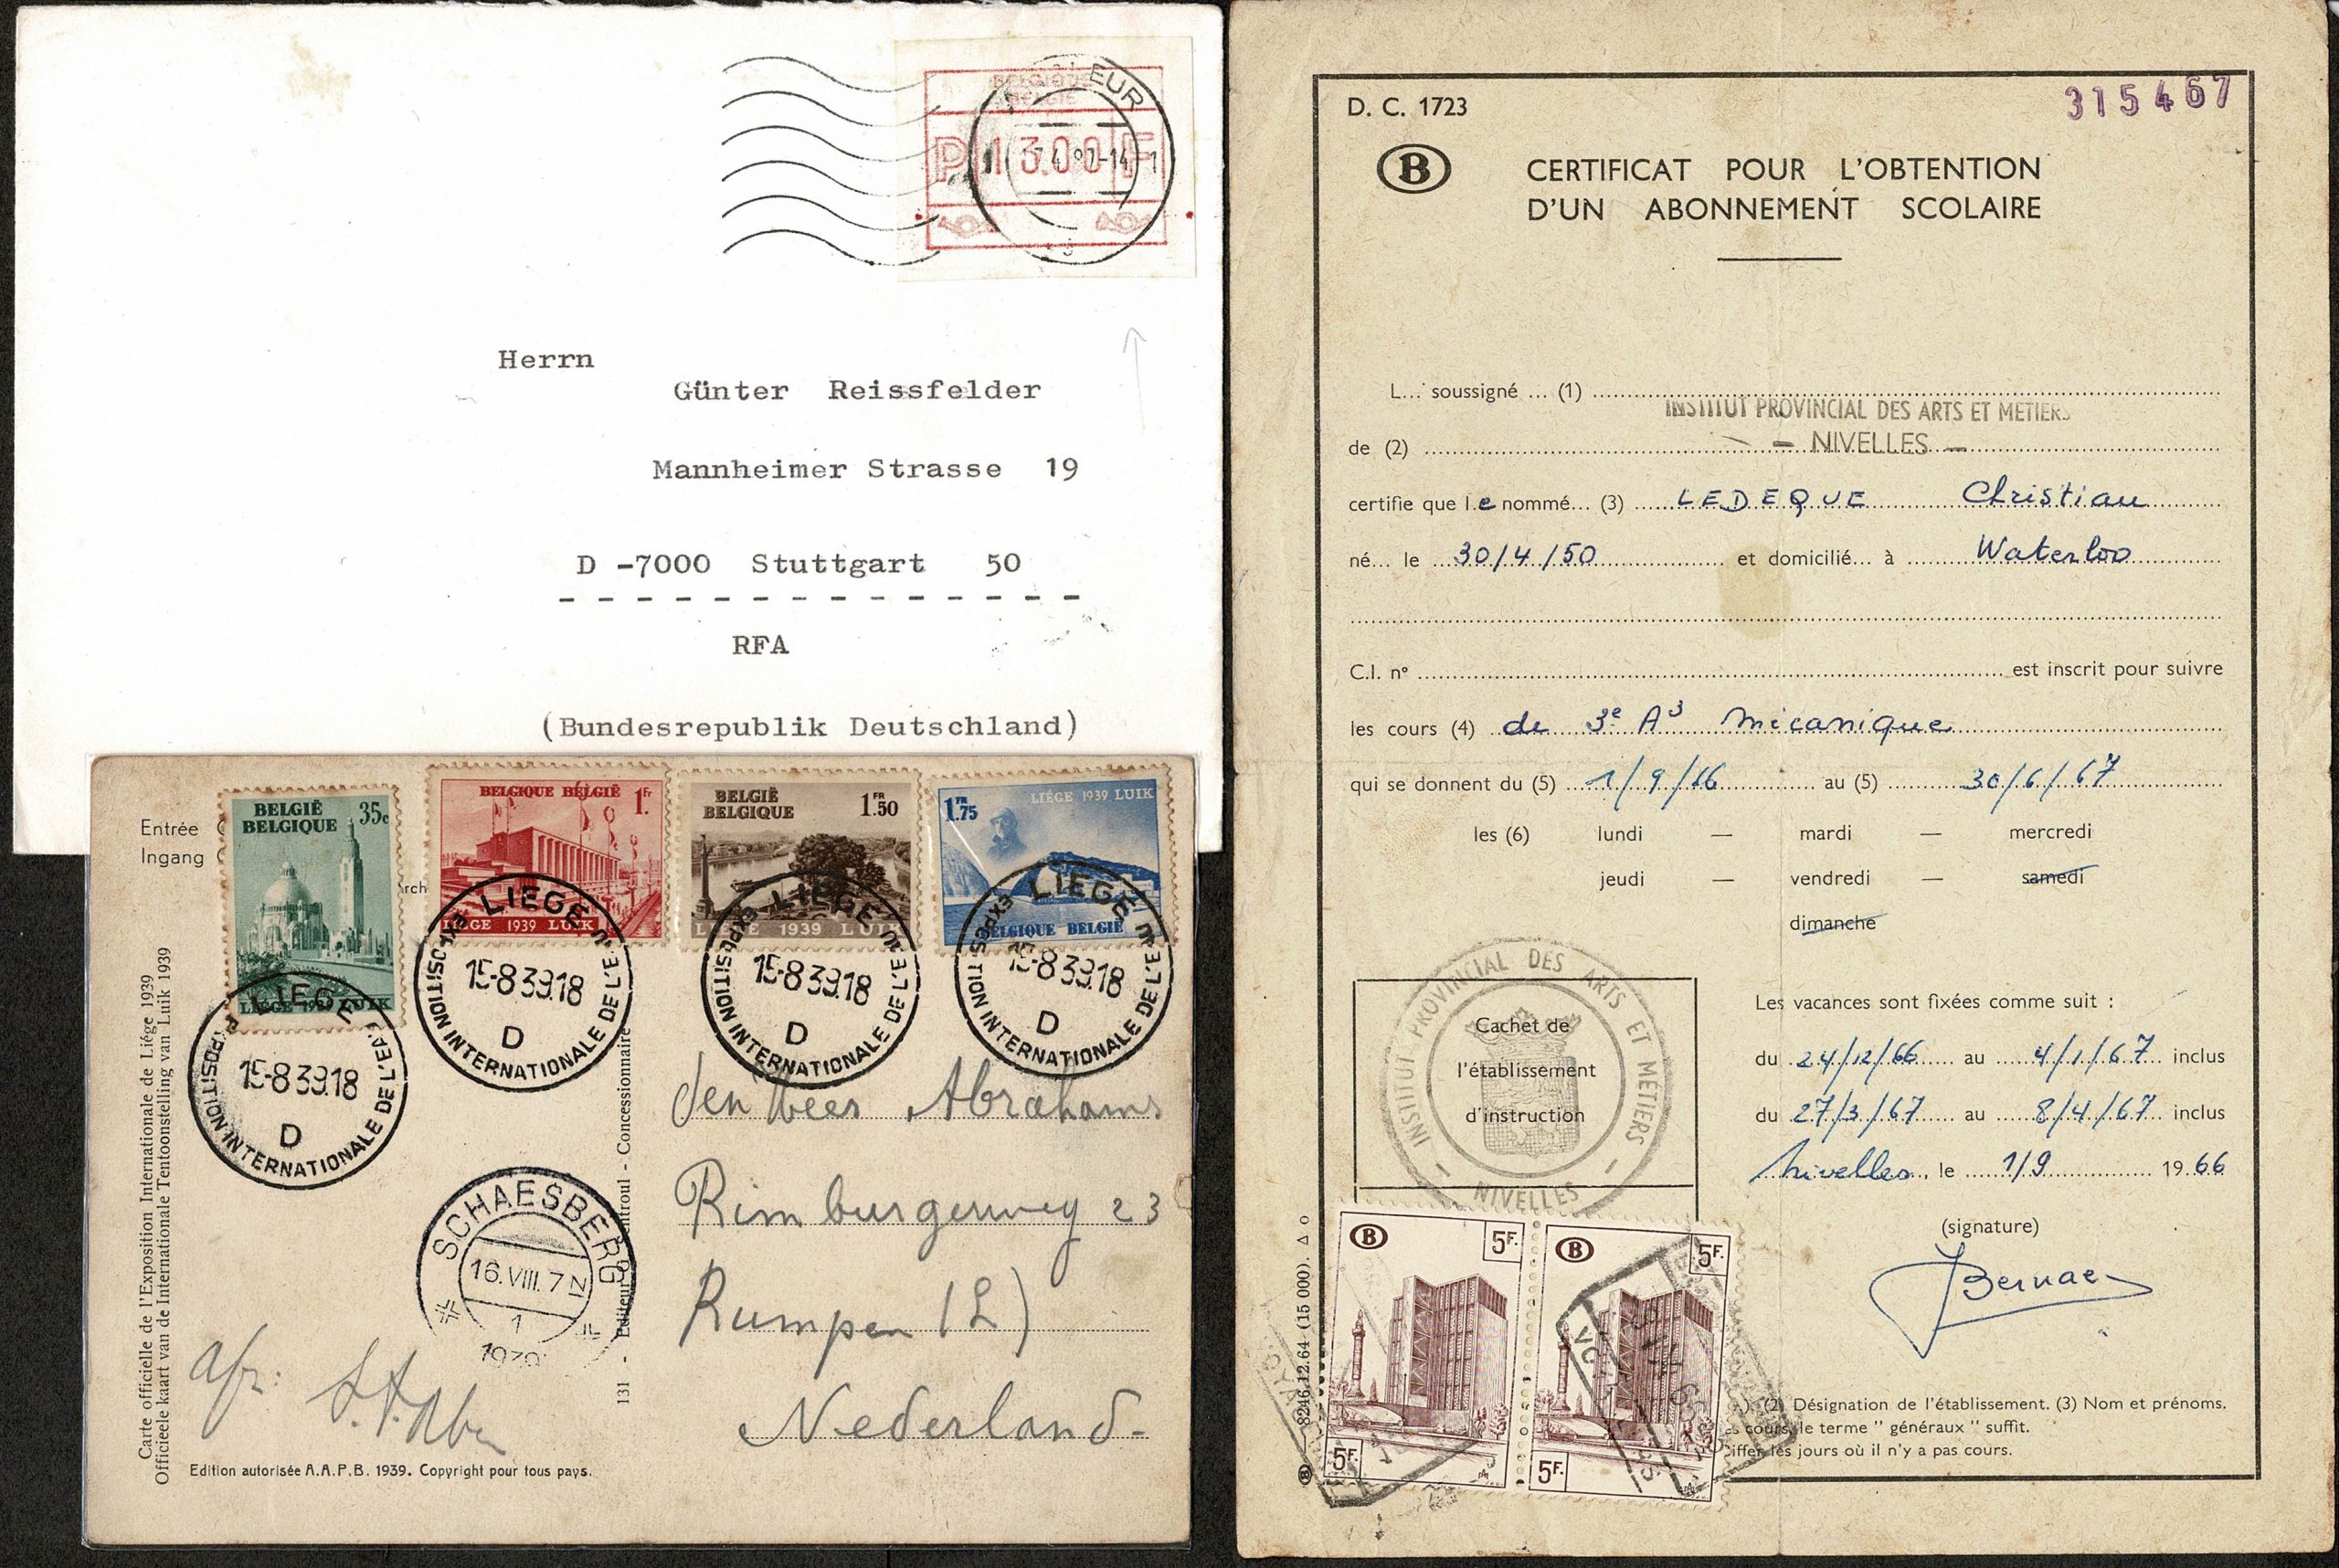 BELGIQUE
BELGIË
P 13.00 F
EUR
Herrn
Günter Reissfelder
Mannheimer Strasse 19
D -7000 Stuttgart 50
RFA
(Bundesrepublik Deutschland)
Entrée
Ingang
BELGIË
BELGIQUE 35c
LIÈGE 1939 LUIK
BELGIQUE BELGIË 1Fr
LIÈGE 1939 LUIK
BELGIË
BELGIQUE
1FR50
LIÈGE 1939 LUIK
1FR75
LIÈGE 1939 LUIK
BELGIQUE BELGIË
LIEGE
15-8 39.18
D
EXPOSITION INTERNATIONALE DE L'EAU
LIEGE
15-8 39.18
D
EXPOSITION INTERNATIONALE DE L'EAU
LIEGE
15-8 39.18
D
EXPOSITION INTERNATIONALE DE L'EAU
LIEGE
15-8 39.18
D
EXPOSITION INTERNATIONALE DE L'EAU
Carte officielle de l'Exposition Internationale de Liége 1939
Officieele kaart van de Internationale Tentoonstelling van Luik 1939
SCHAESBERG
16.VIII.7
1
1939
131 - Editeur - Concessionnaire
den Heer Abrahams
Rimburgerweg 23
Rumpen (L)
Nederland.
afz:
Edition autorisée A.A.P.B. 1939. Copyright pour tous pays.
D. C. 1723
315467
B
CERTIFICAT POUR L'OBTENTION
D'UN ABONNEMENT SCOLAIRE
L... soussigné ... (1)
INSTITUT PROVINCIAL DES ARTS ET METIERS
de (2) - NIVELLES -
certifie que le nommé... (3) LEDEQUE Christian
né... le 30/4/50 et domicilié... à Waterloo
C.I. n° est inscrit pour suivre
les cours (4) de 3e A3 mécanique
qui se donnent du (5) 1/9/66 au (5) 30/6/67
les (6) lundi — mardi — mercredi
jeudi — vendredi — samedi
dimanche
INSTITUT PROVINCIAL DES ARTS ET MÉTIERS
- NIVELLES -
Cachet de
l'établissement
d'instruction
Les vacances sont fixées comme suit :
du 24/12/66 au 4/1/67 inclus
du 27/3/67 au 8/4/67 inclus
Nivelles, le 1/9 1966
(signature)
B 5F.
5F.
B 5F.
5F.
8246.12.64 (15 000).
(2) Désignation de l'établissement. (3) Nom et prénoms.
cours, le terme " généraux " suffit.
les jours où il n'y a pas cours.